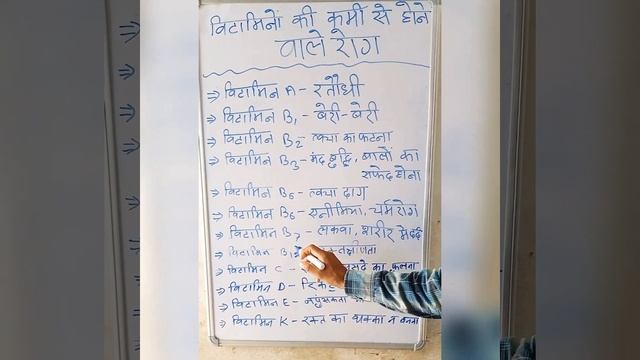 विटामिनों की कमी से होने
वाले रोग
⇒ विटामिन A - रतौंधी
⇒ विटामिन B₁ - बेरी-बेरी
⇒ विटामिन B₂ - त्वचा का फटना
⇒ विटामिन B₃ - मंद बुद्धि, बालों का
सफेद होना
⇒ विटामिन B₅ - त्वचा दाग
⇒ विटामिन B₆ - एनीमिया, चर्मरोग
⇒ विटामिन B₇ - लकवा, शरीर में दर्द
⇒ विटामिन B₁₂
⇒ विटामिन C - का फूलना
⇒ विटामिन D -
⇒ विटामिन E - नपुंसकता
⇒ विटामिन K - रक्त का थक्का न बनना